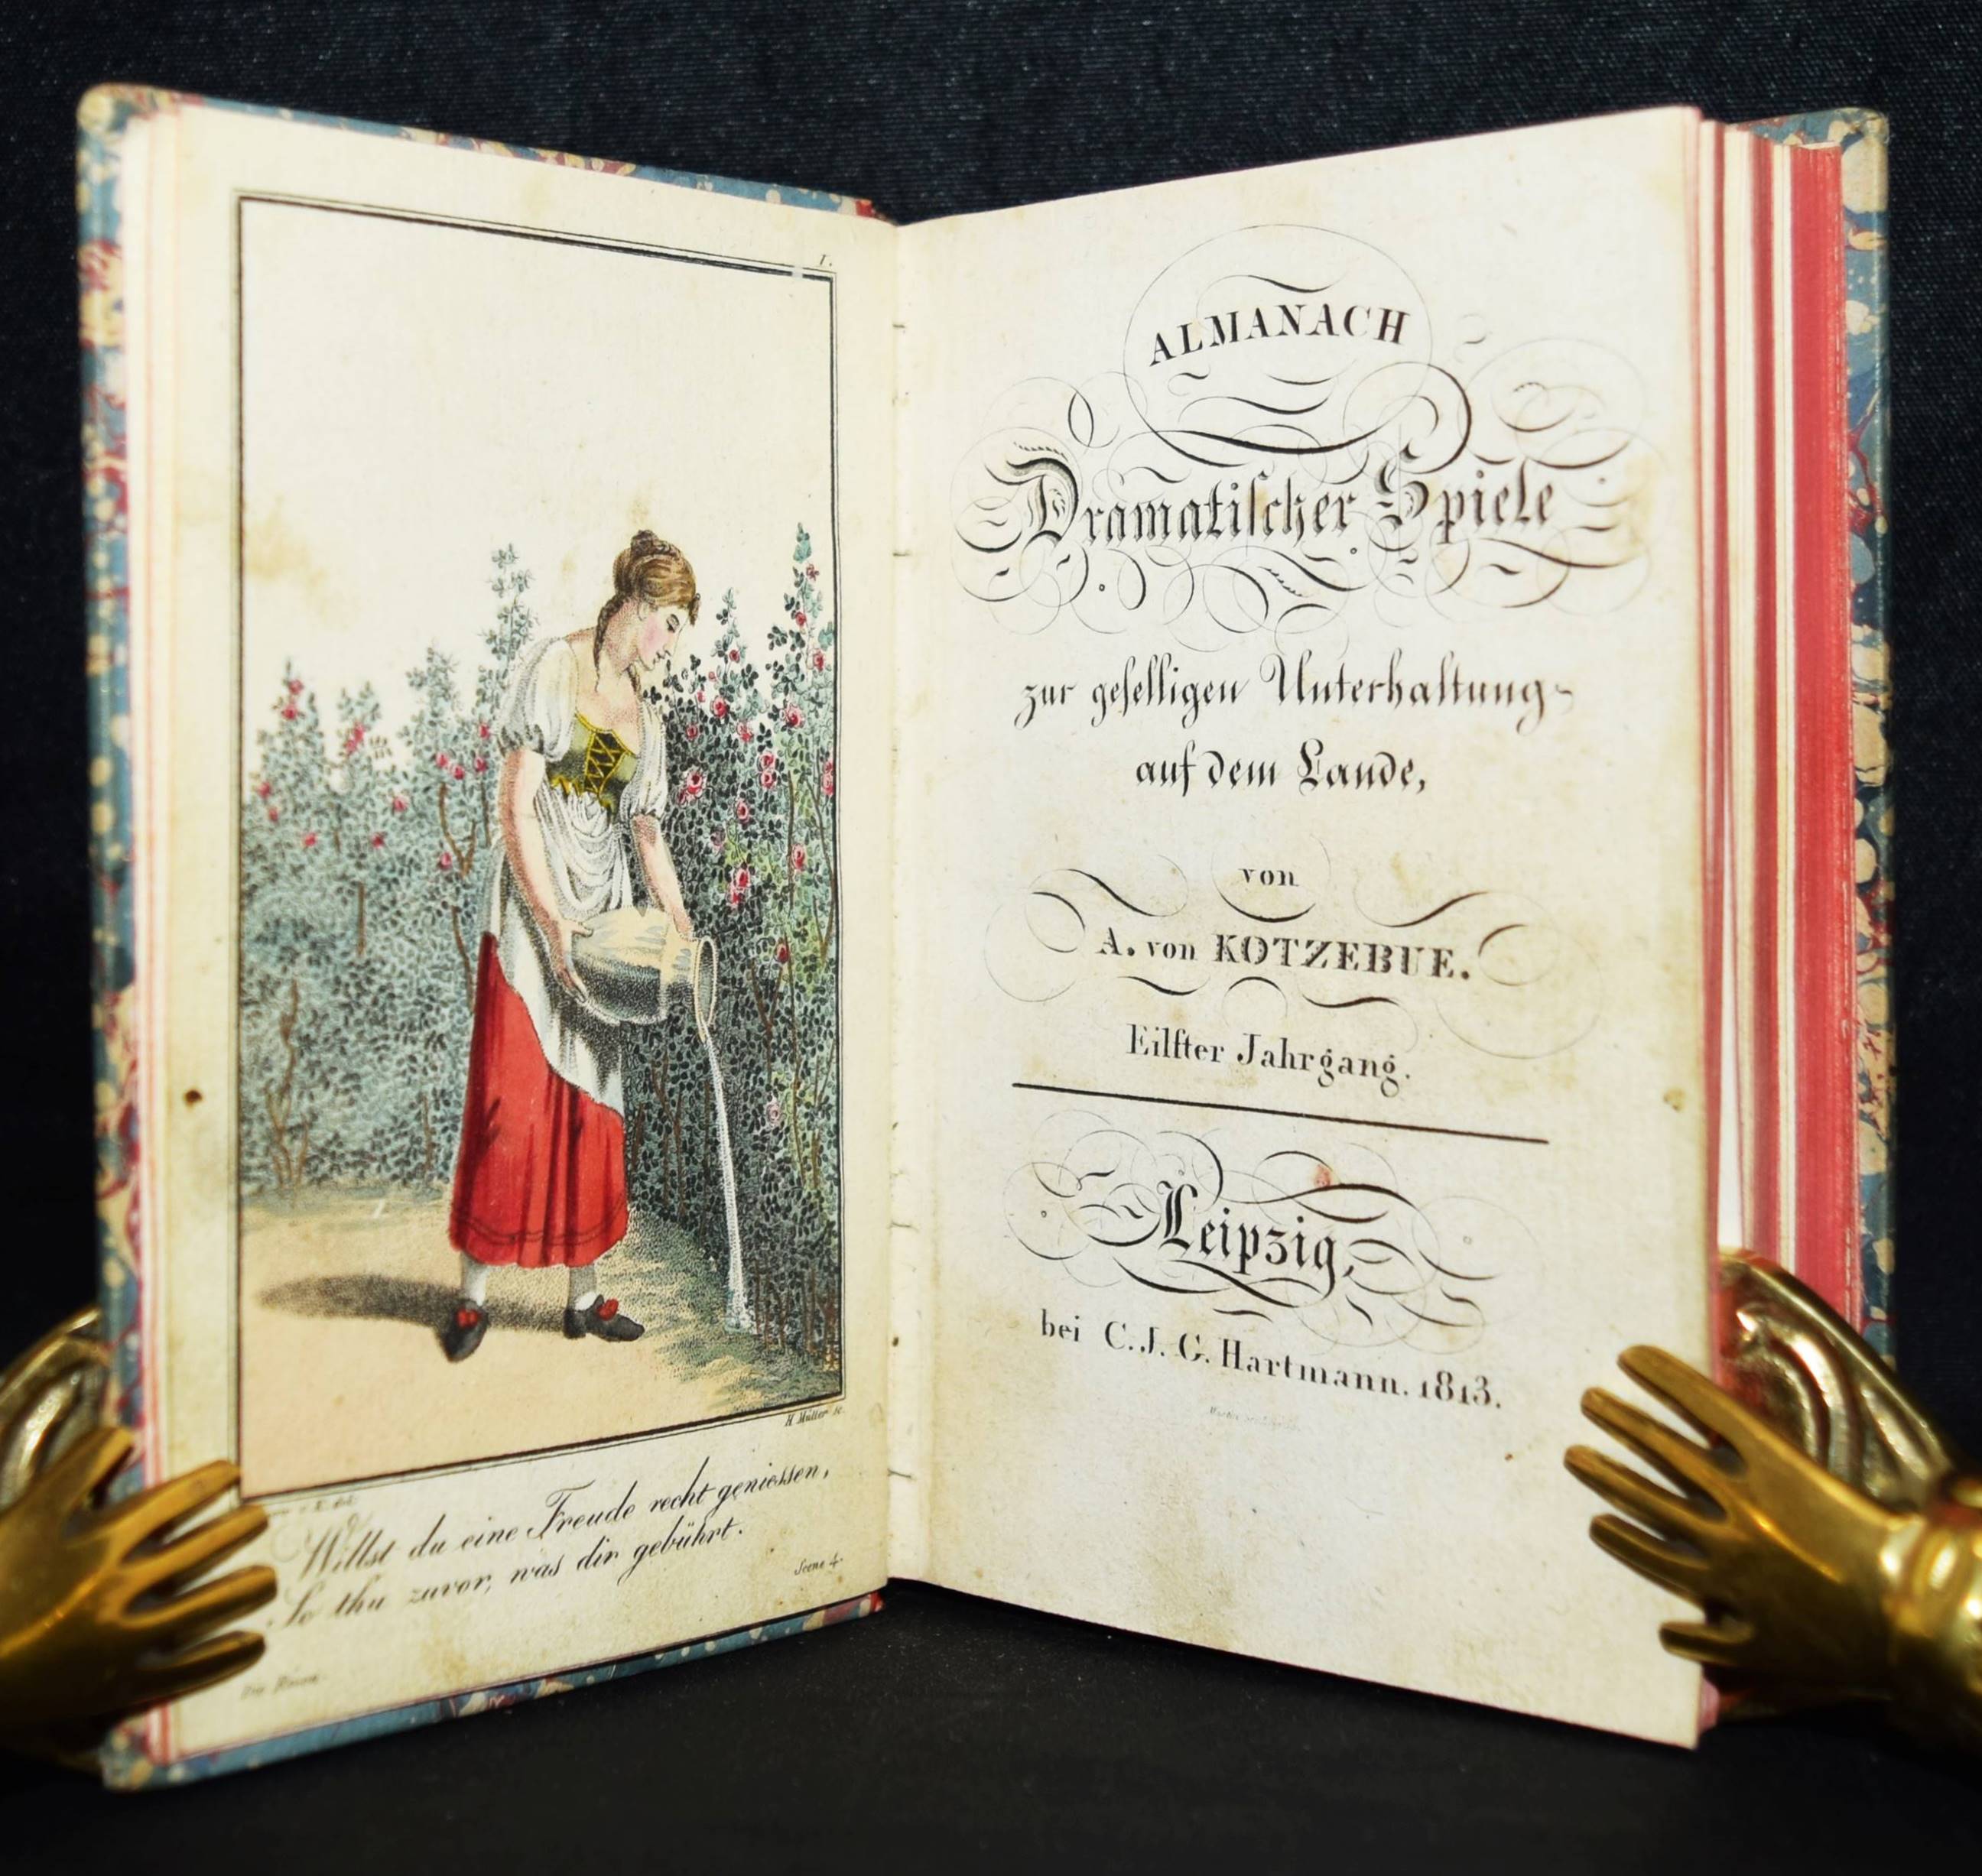 I.
H. Müller sc.
Willst du eine Freude recht geniessen,
So thu zuvor, was dir gebührt.
Scene 4.
Die Rosen
ALMANACH
Dramatiſcher Spiele
zur geſelligen Unterhaltung
auf dem Lande,
von
A. von KOTZEBUE.
Eilfter Jahrgang.
Leipzig,
bei C. J. G. Hartmann. 1813.